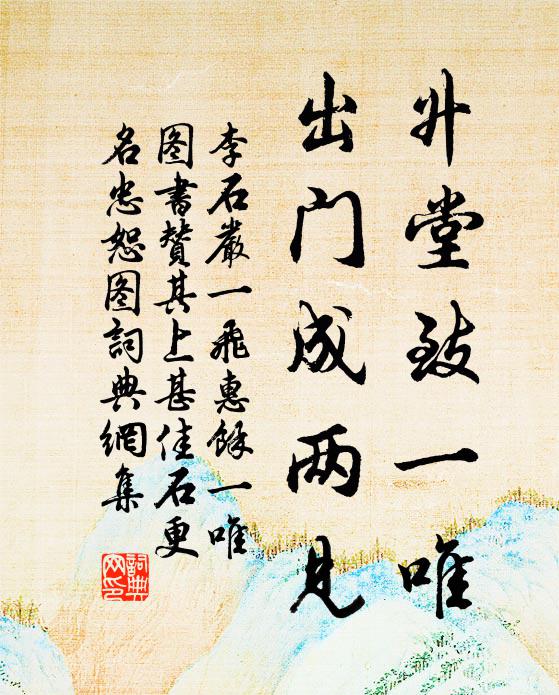 升堂致一唯
出门成两见
李石岩一飛惠餘一唯
图書贊其上甚佳石更
名忠恕图詞典網集
詞典
网印